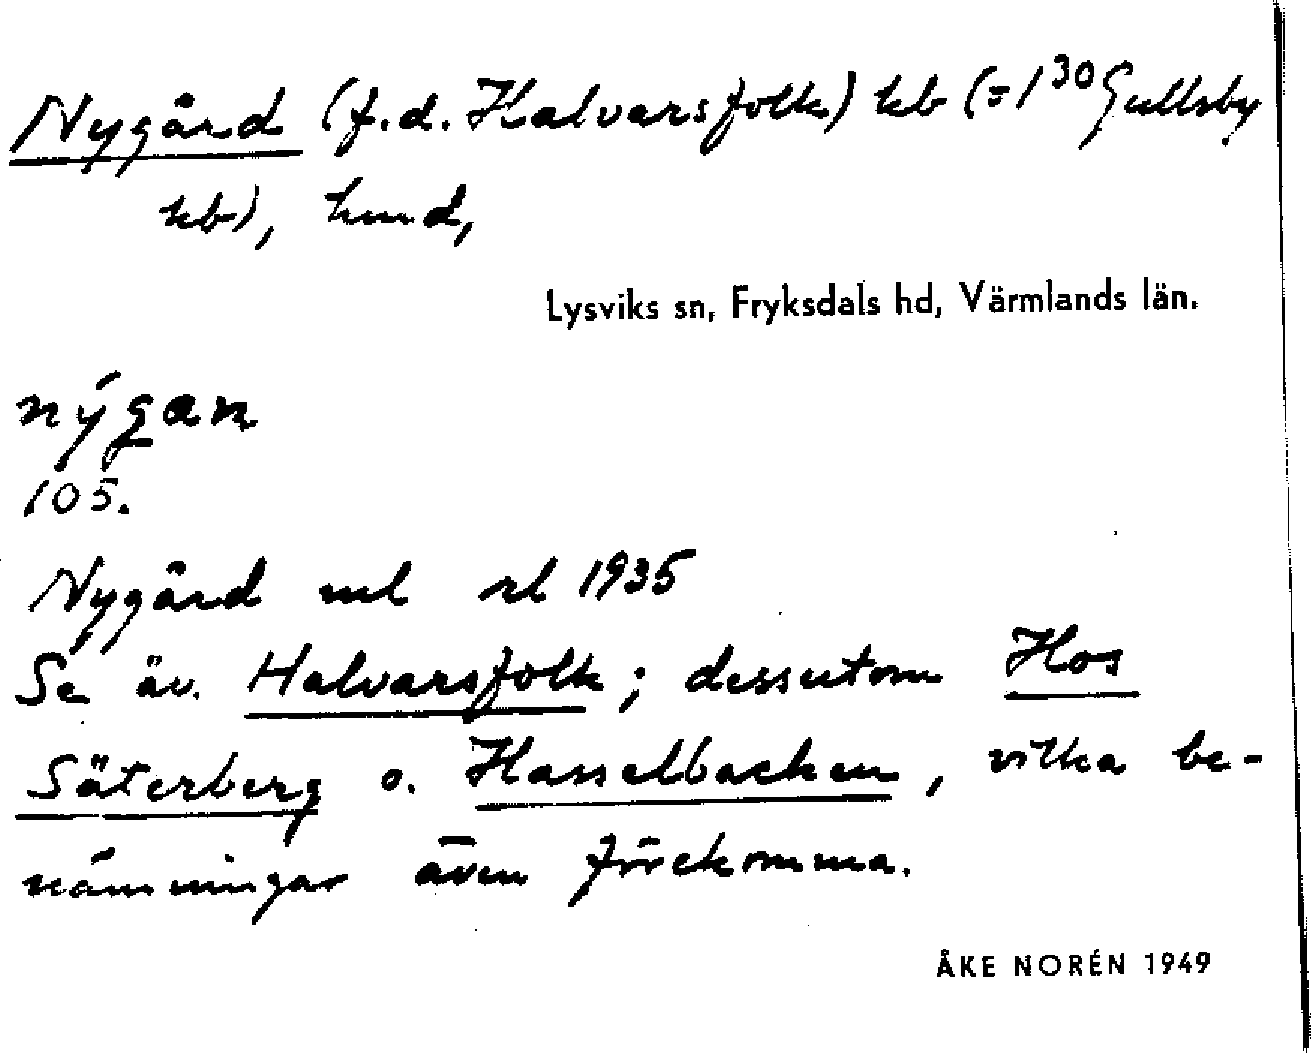 Nygård (f.d. Halvarsfolk) hb (=1³⁰ Gullsby
hb), hmd,
Lysviks sn, Fryksdals hd, Värmlands län.
nýgan
105.
Nygård rul rl 1935
Se äv. Halvarsfolk; dessutom Hos
Säterberg o. Hasselbacken, vilka be-
nämningar även förekomma.
ÅKE NORÉN 1949